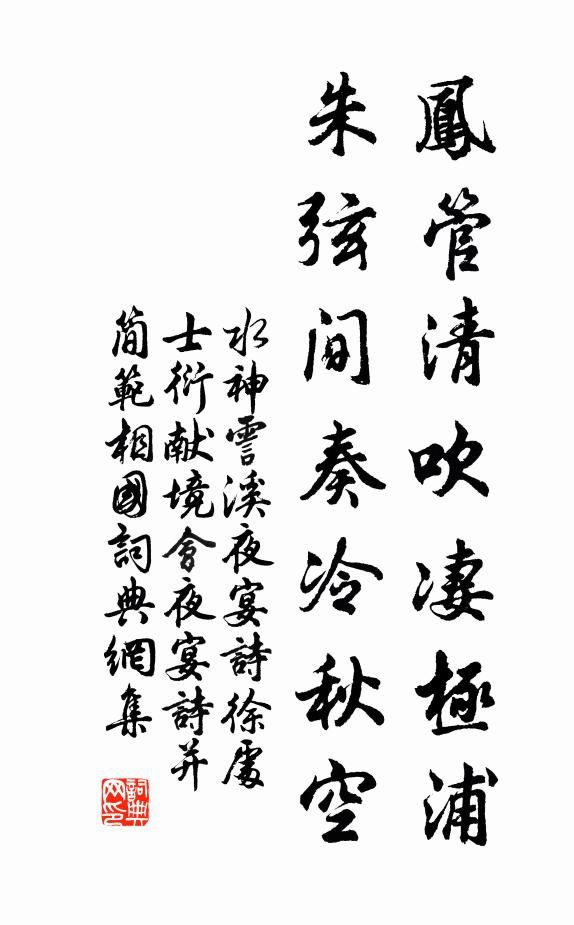 鳳管清吹凄極浦
朱弦间奏冷秋空
水神霅溪夜宴詩徐處
士衍献境會夜宴詩并
简範相國詞典網集
詞典网印